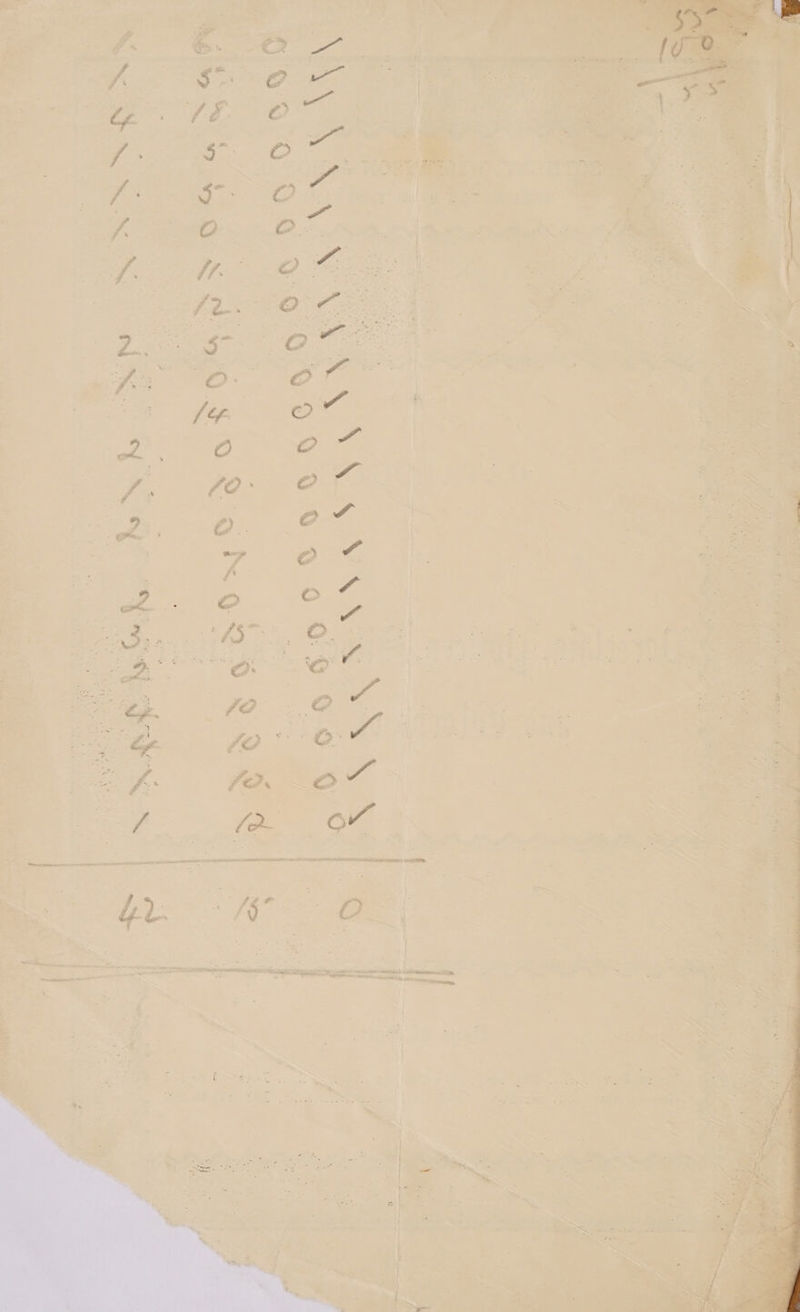 1. 6. 0 ✓
1. 5. 0 ✓
4. 18. 0 ✓
1. 5. 0 ✓
1. 5. 0 ✓
1. 0 0 ✓
1. 11. 0 ✓
12. 0 ✓
2. 5 0 ✓
1. 0. 0 ✓
14 0 ✓
2. 0 0 ✓
1. 10. 0 ✓
2. 0. 0 ✓
7 0 ✓
2. 0 0 ✓
3. 15 0. ✓
2 0. 0 ✓
4. 10 0 ✓
4 10 0. ✓
1. 10. 0 ✓
1 12 0 ✓
42. 15 0
55
100
155